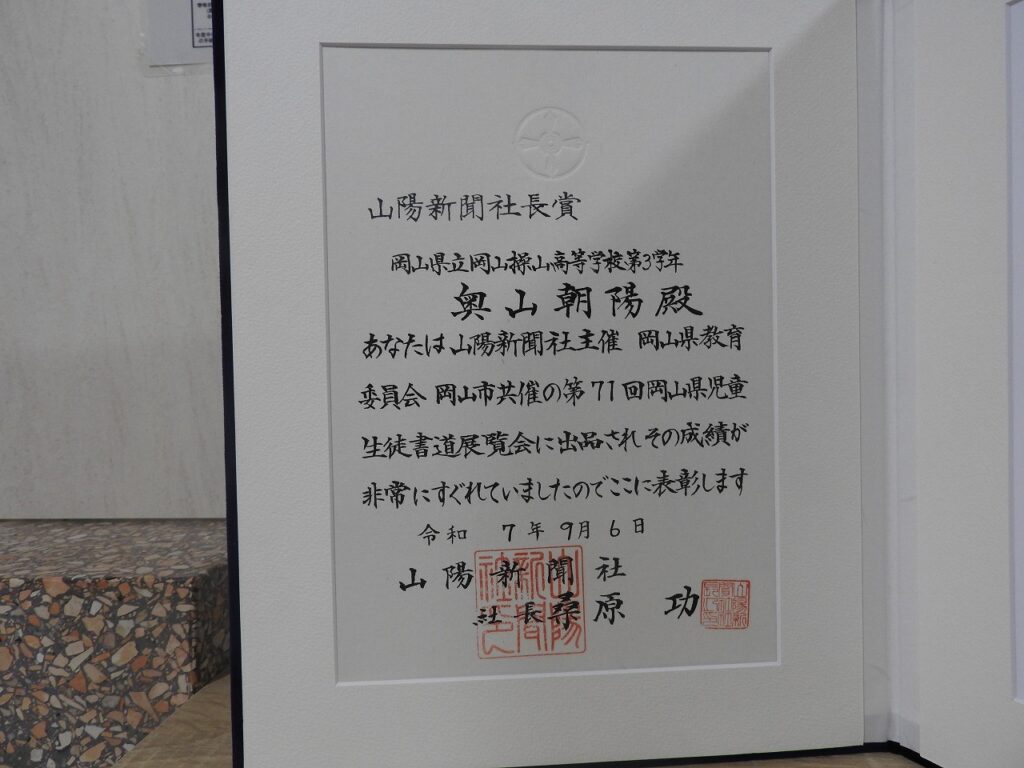 山陽新聞社長賞
岡山県立岡山操山高等学校第3学年
奥山朝陽殿
あなたは山陽新聞社主催 岡山県教育
委員会 岡山市共催の第71回岡山県児童
生徒書道展覧会に出品されその成績が
非常にすぐれていましたのでここに表彰します
令和 7年 9月 6日
山陽新聞社
社長 桑原 功